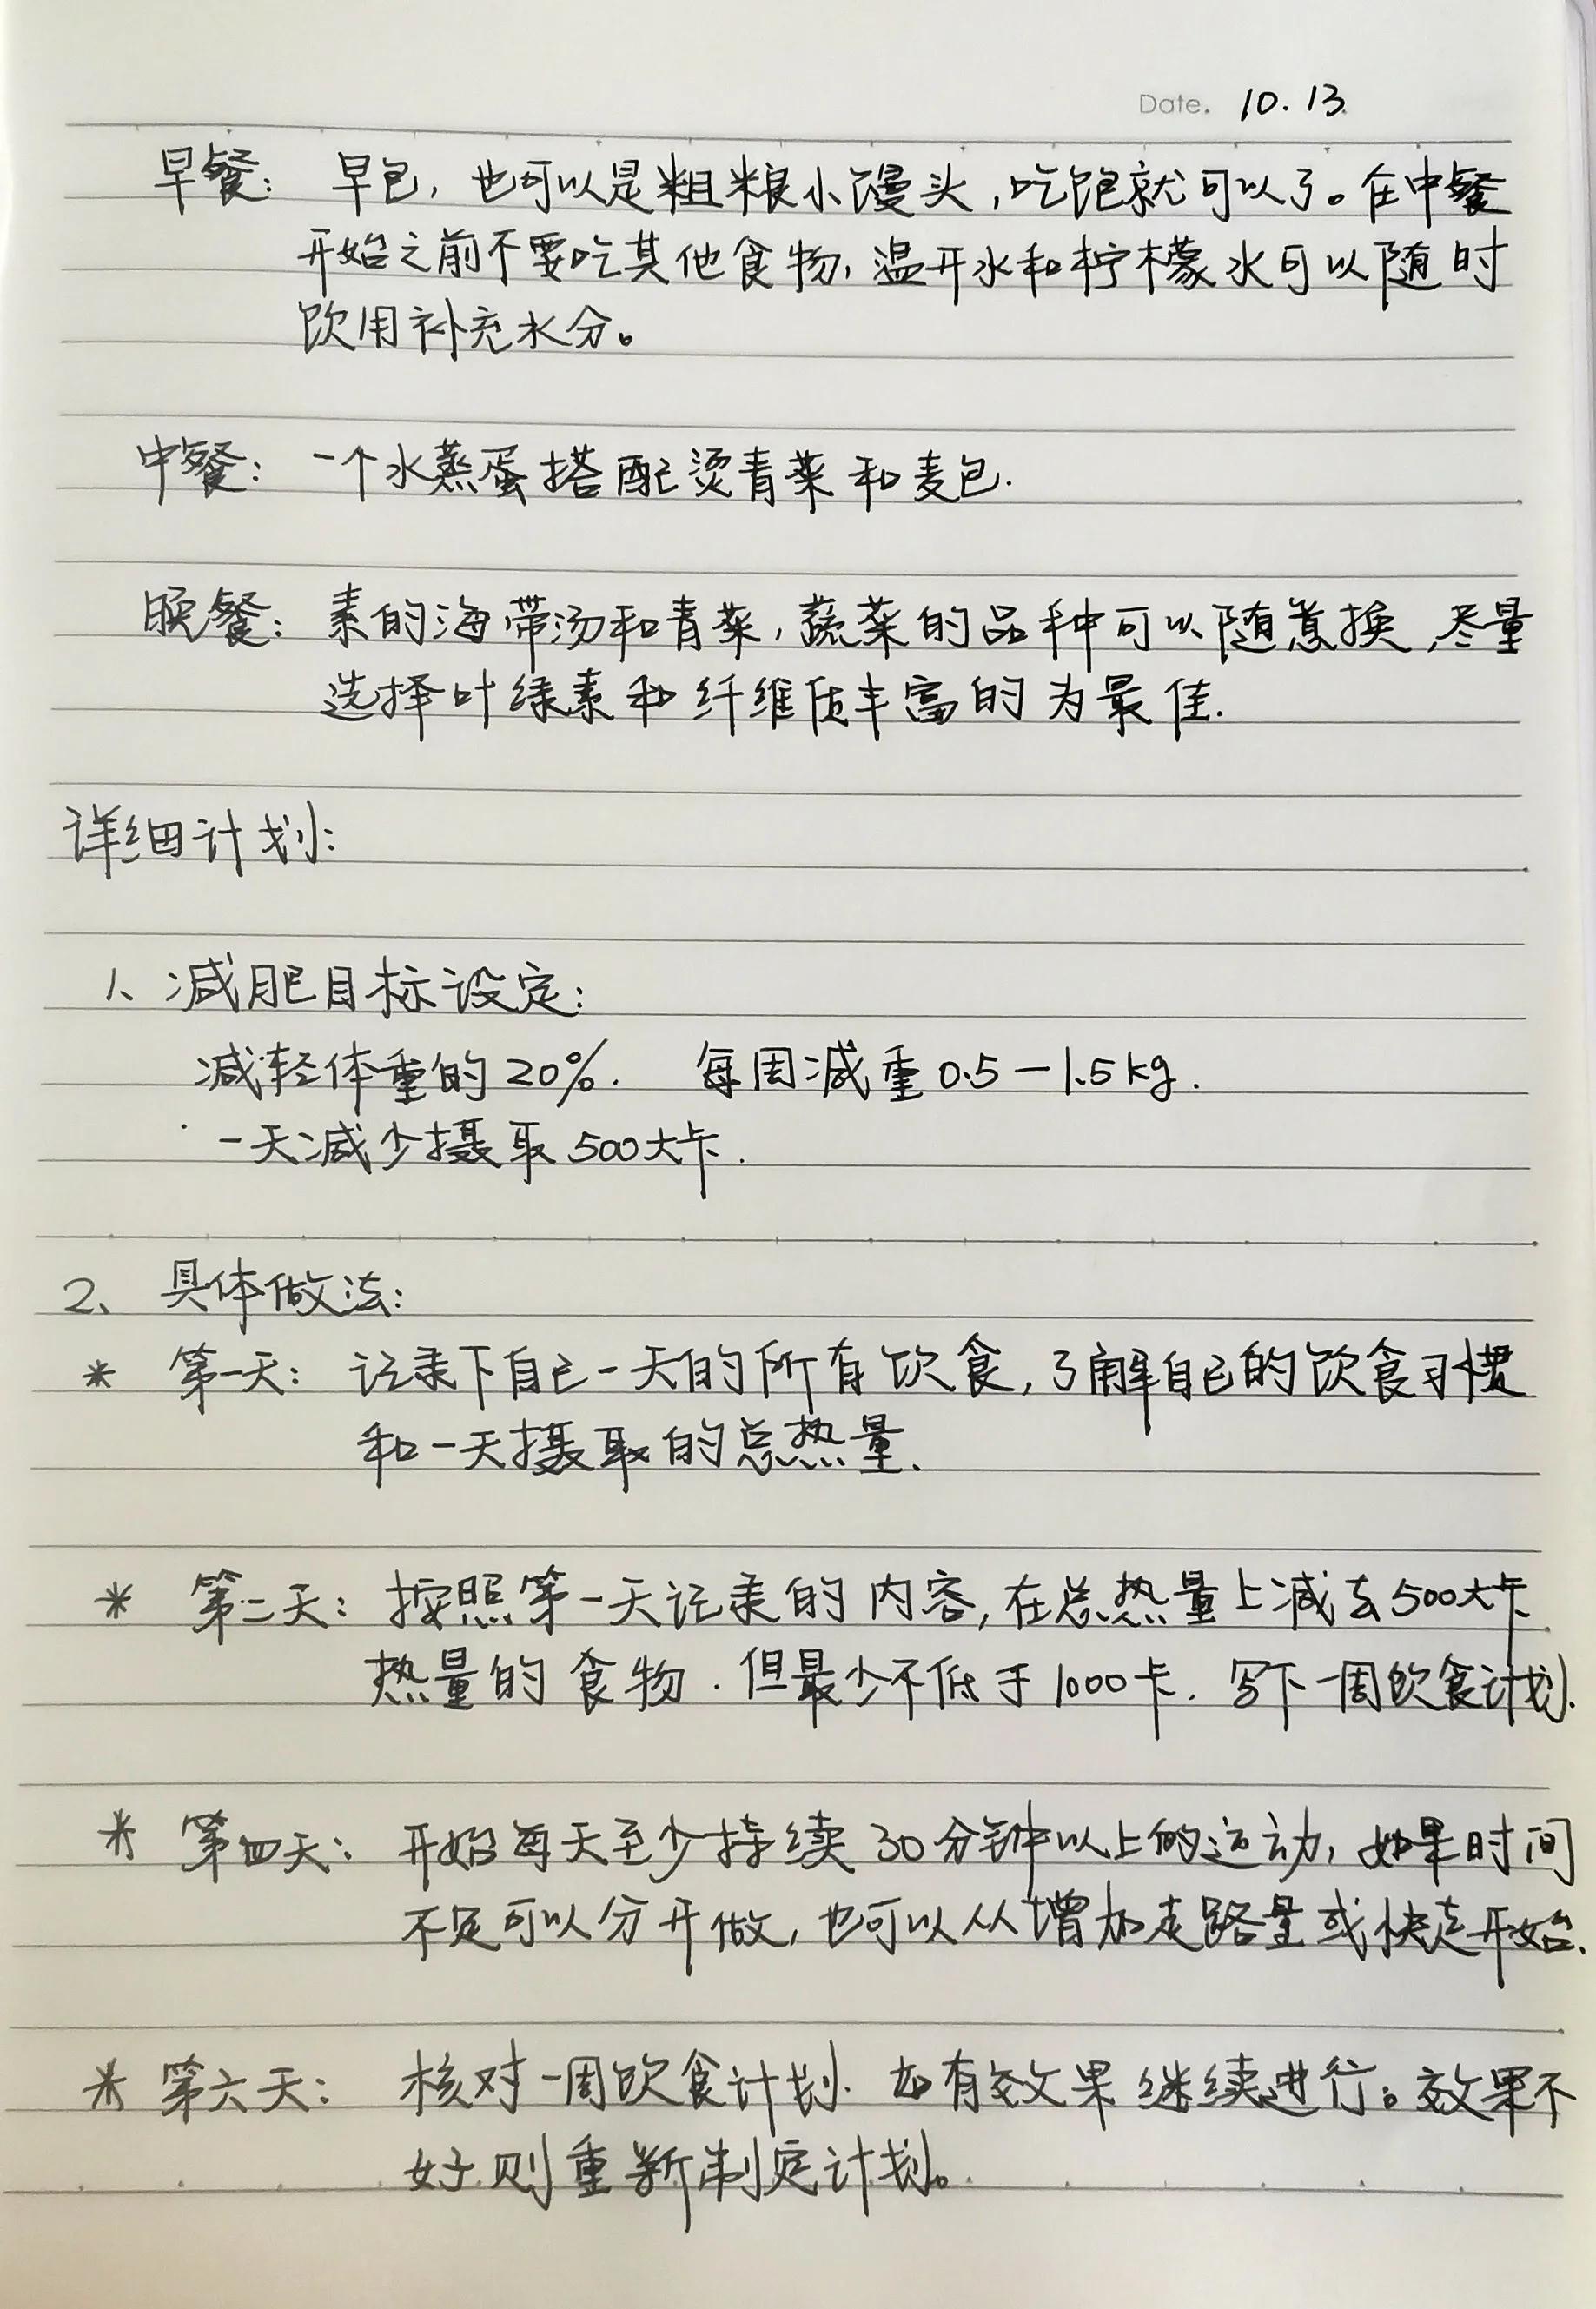 Date. 10.13
早餐: 早包, 也可以是粗粮小馒头,吃饱就可以了。在中餐
开始之前不要吃其他食物, 温开水和柠檬水可以随时
饮用补充水分。
中餐: 一个水蒸蛋搭配烫青菜和麦包.
晚餐: 素的海带汤和青菜, 蔬菜的品种可以随意换,尽量
选择叶绿素和纤维质丰富的为最佳.
详细计划:
1、减肥目标设定:
减轻体重的20%. 每周减重0.5-1.5kg.
一天减少摄取500大卡.
2、具体做法:
* 第一天: 记录下自己一天的所有饮食,了解自己的饮食习惯
和一天摄取的总热量.
* 第二天: 按照第一天记录的内容,在总热量上减去500大卡
热量的食物.但最少不低于1000卡. 写下一周饮食计划.
* 第四天: 开始每天至少持续30分钟以上的运动, 如果时间
不足可以分开做, 也可以从增加走路量或快走开始.
* 第六天: 核对一周饮食计划. 如有效果继续进行。效果不
好则重新制定计划。